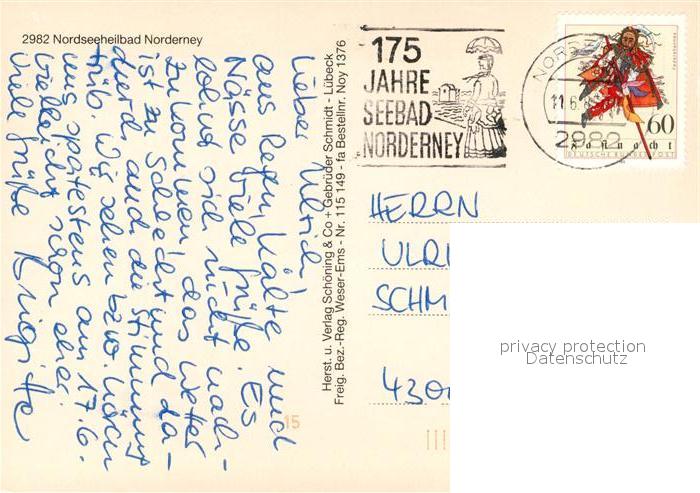 2982 Nordseeheilbad Norderney
Lieber Ulrich
aus Regen, Kälte und
Nässe viele Grüße. Es
lohnt sich nicht nach-
zukommen, das Wetter
ist zu schlecht und da-
durch auch die Stimmung
trüb. Wir sehen bzw. hören
uns spätestens am 17.6.
vielleicht schon eher.
Viele Grüße Brigitte
Herst. u. Verlag Schöning & Co + Gebrüder Schmidt - Lübeck
Freig. Bez.-Reg. Weser-Ems - Nr. 115 149 - fa Bestellnr. Noy 1376
175
JAHRE
SEEBAD
NORDERNEY
NORD
11.6.8
2982
60
Fastnacht
DEUTSCHE BUNDESPOST
HERRN
ULRI
SCHM
430
15
privacy protection
Datenschutz